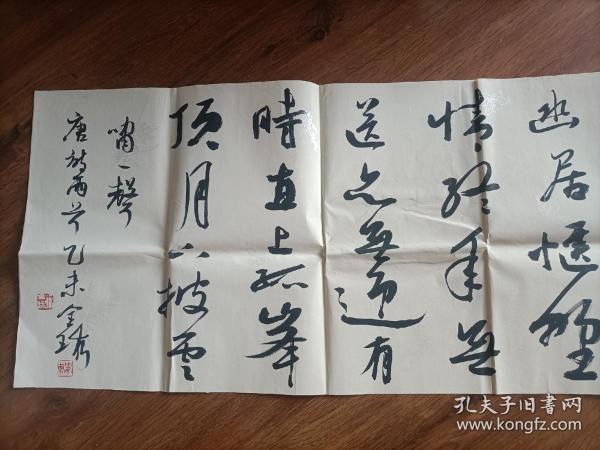 幽居愜野
情終年無
送亦無迎有
時直上孤峯
頂月下披雲
嘯一聲
唐 乙未
孔夫子旧书网
www.kongfz.com